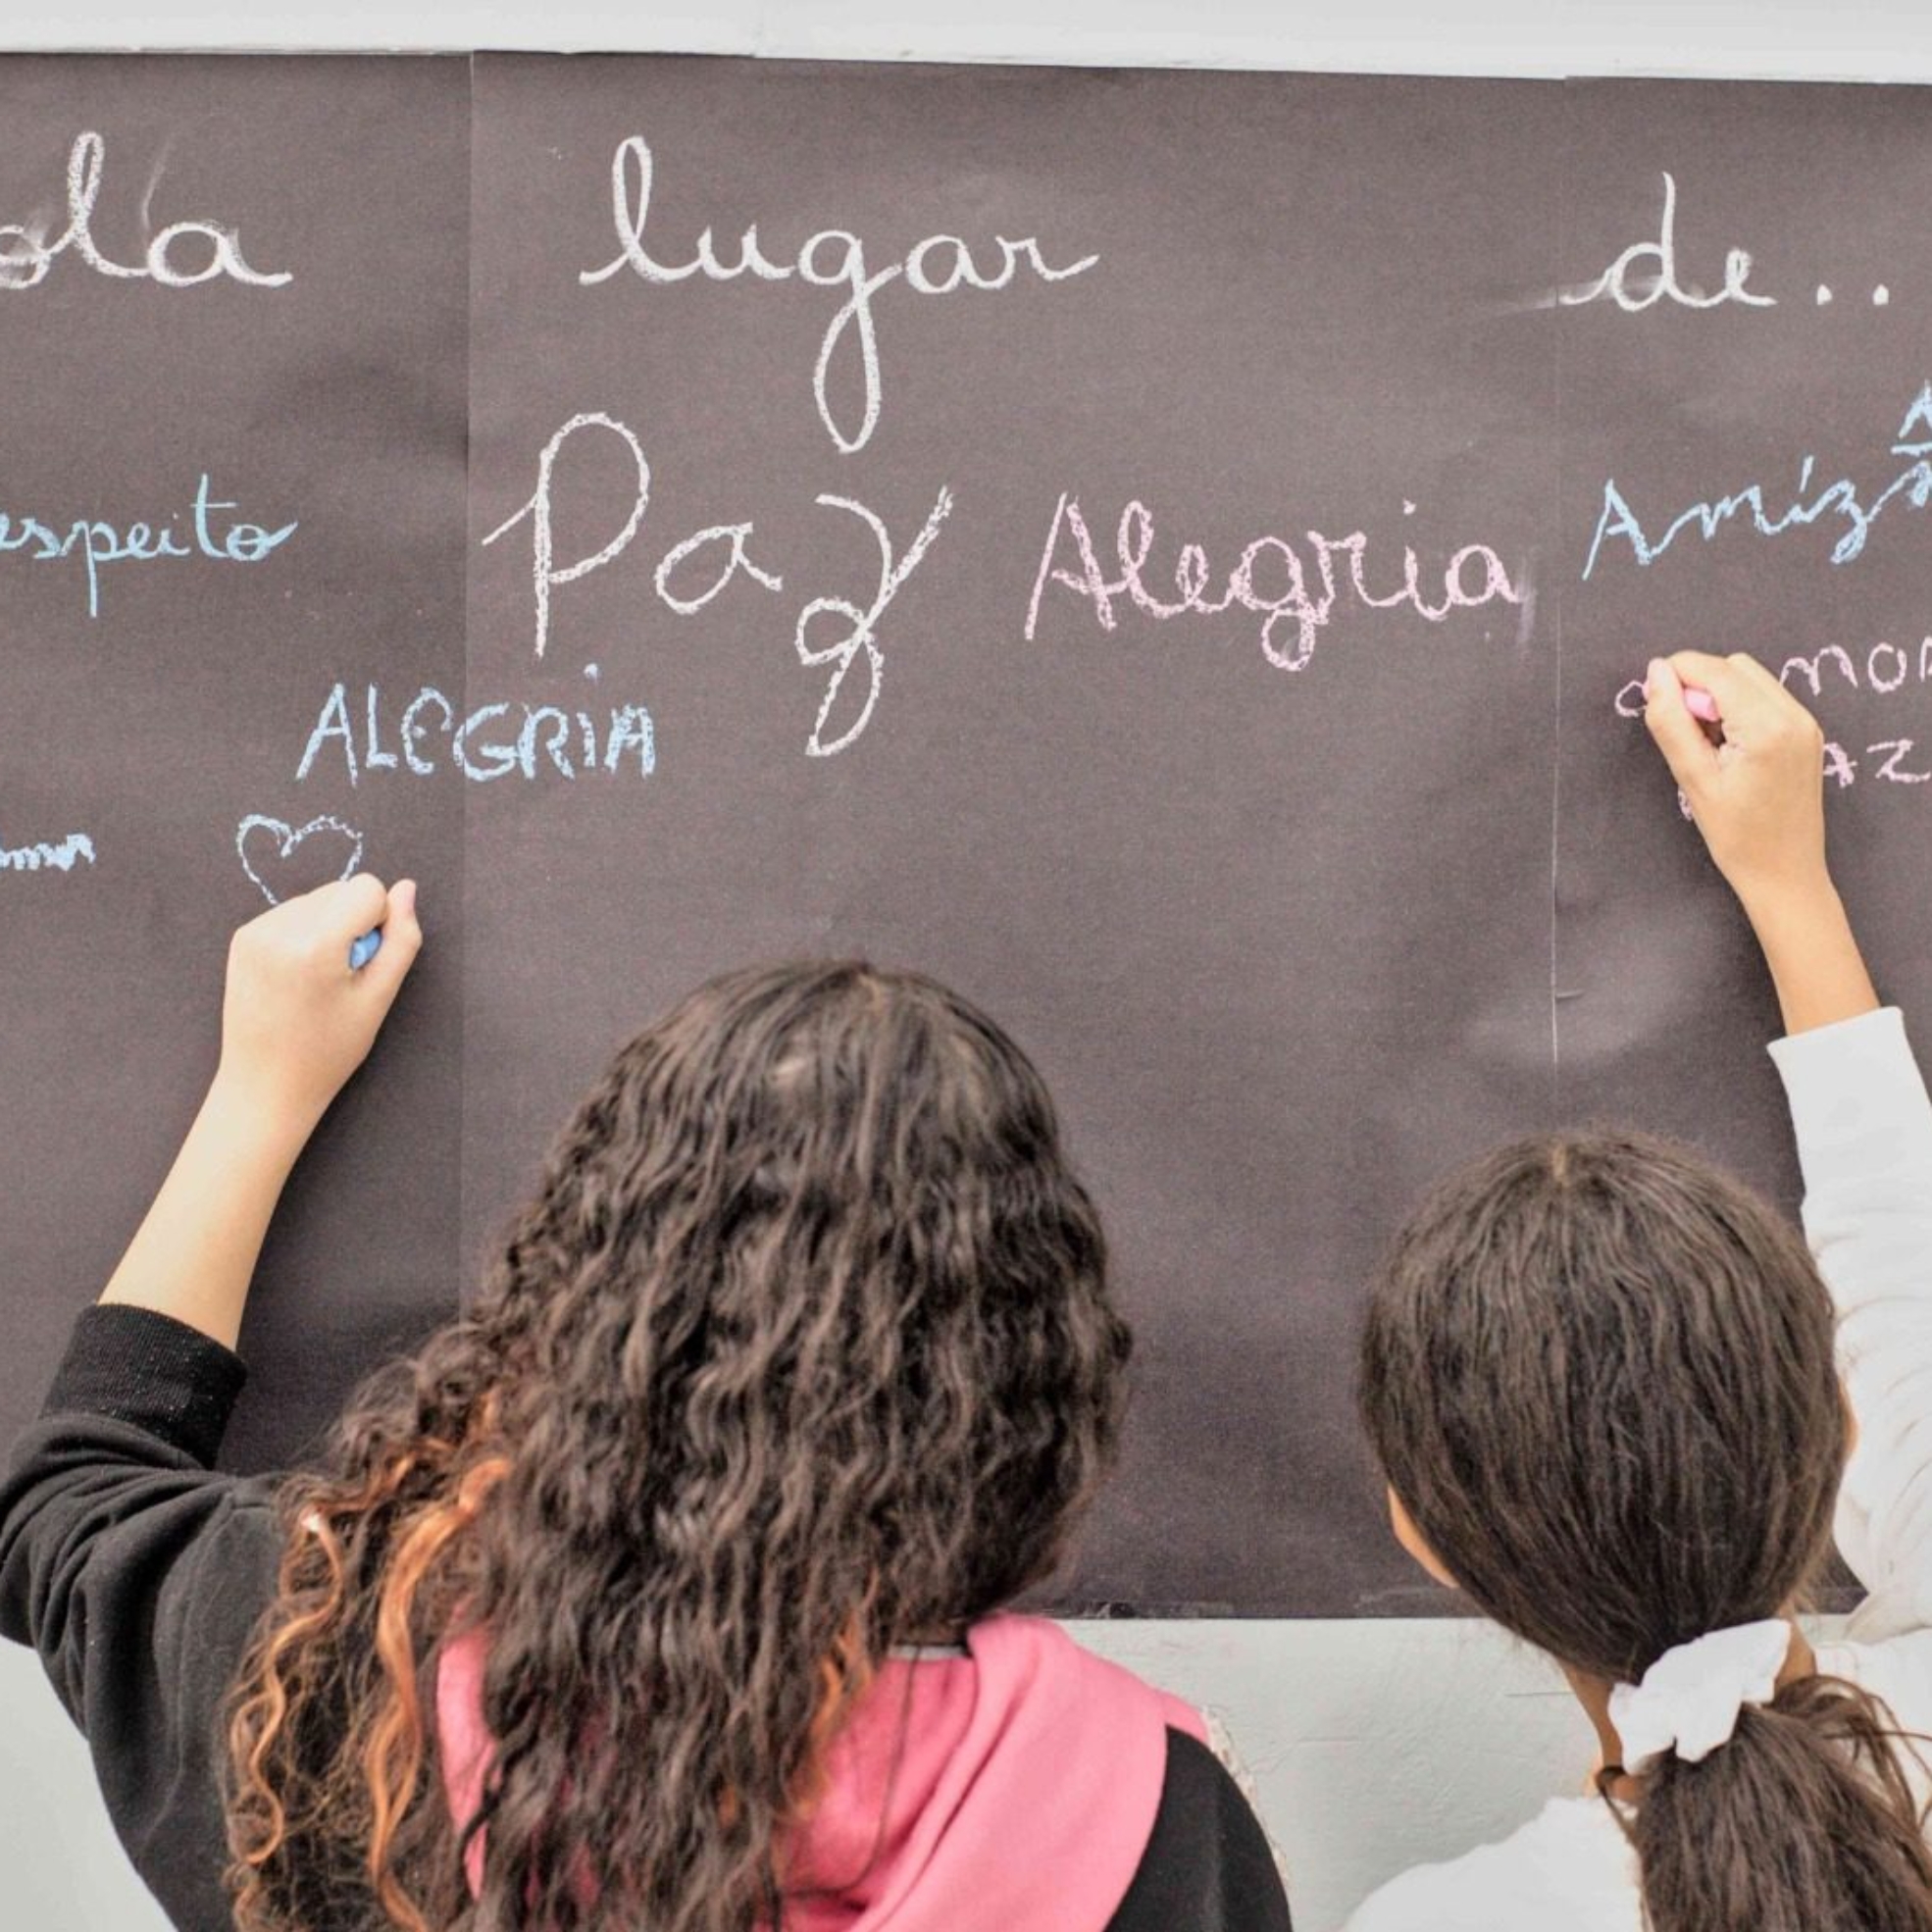 ola lugar de..
espeito Paz Alegria Amiza
ALEGRIA
amor
az